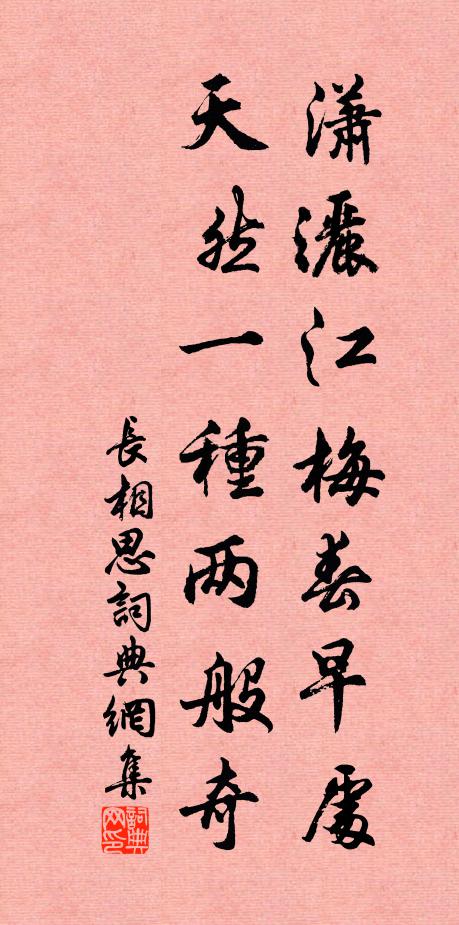 瀟灑江梅春早處
天然一種两般奇
長相思詞典網集
詞典网印